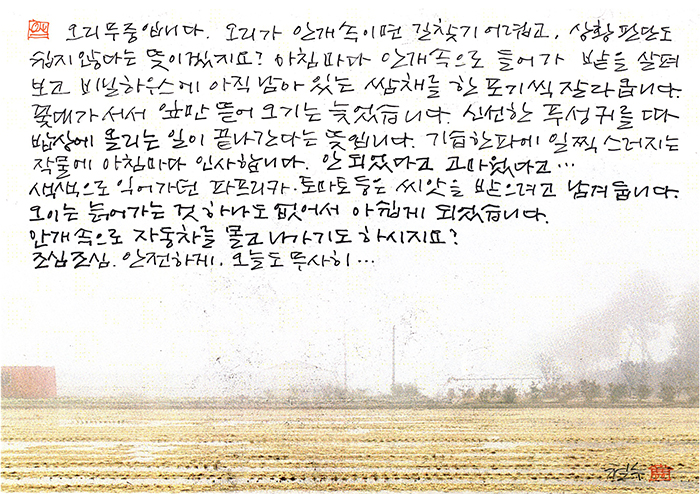 오리무중입니다. 오리가 안개속이면 길찾기 어렵고, 상황 판단도
쉽지 않다는 뜻이겠지요? 아침마다 안개속으로 들어가 밭을 살펴
보고 비닐하우스에 아직 남아 있는 쌈채를 한 포기씩 잘라 옵니다.
꽃대가 서서 잎만 뜯어 오기는 늦었습니다. 신선한 푸성귀를 따다
밥상에 올리는 일이 끝나간다는 뜻입니다. 기습한파에 일찍 스러지는
작물에 아침마다 인사합니다. 안 되었다고 고마웠다고…
색색으로 익어가던 파프리카·토마토 등은 씨앗을 받으려고 남겨 둡니다.
오이는 늙어가는 것 하나도 없어서 아쉽게 되었습니다.
안개 속으로 자동차를 몰고 나가기도 하시지요?
조심조심. 안전하게. 오늘도 무사히…